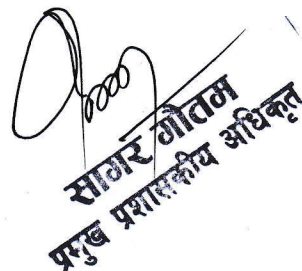 सागर गौतम
प्रमुख प्रशासकीय अधिकृत